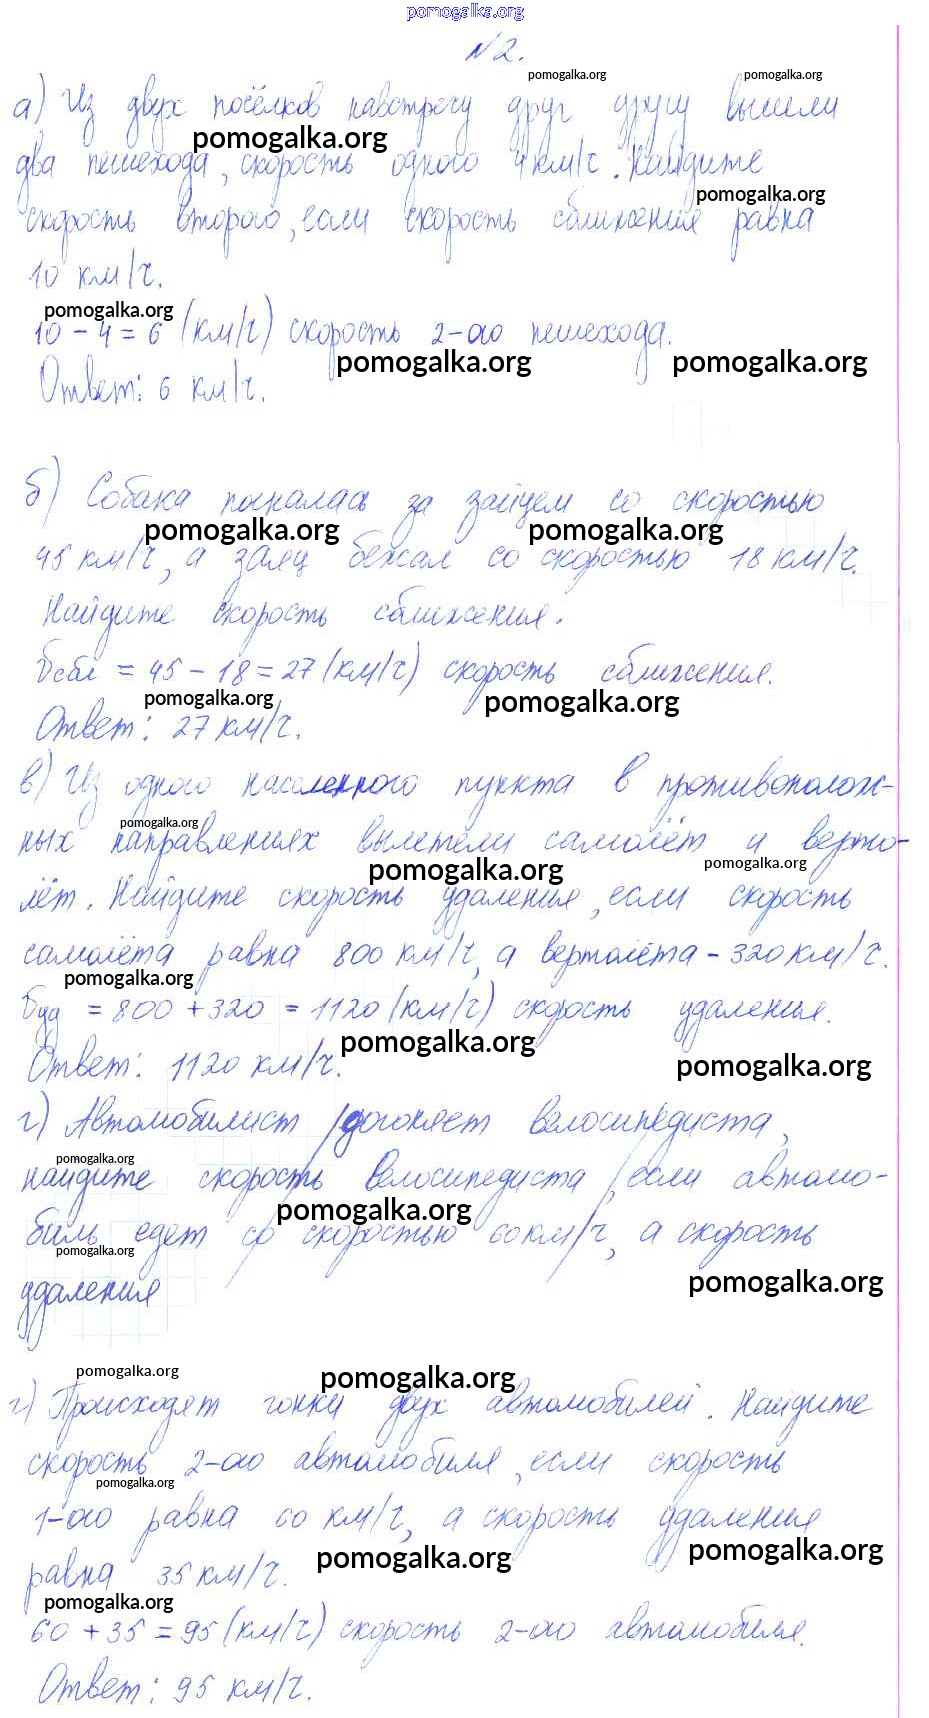 pomogalka.org
№2.
pomogalka.org pomogalka.org
а) Из двух посёлков навстречу друг другу вышли
pomogalka.org
два пешехода, скорость одного 4 км/ч. Найдите
pomogalka.org
скорость второго, если скорость сближения равна
10 км/ч.
pomogalka.org
10 - 4 = 6 (км/ч) скорость 2-ого пешехода.
pomogalka.org pomogalka.org
Ответ: 6 км/ч.
б) Собака погналась за зайцем со скоростью
pomogalka.org pomogalka.org
45 км/ч, а заяц бежал со скоростью 18 км/ч.
Найдите скорость сближения.
υсбл = 45 - 18 = 27 (км/ч) скорость сближения.
pomogalka.org pomogalka.org
Ответ: 27 км/ч.
в) Из одного населенного пункта в противополож-
pomogalka.org
ных направлениях вылетели самолёт и верто-
pomogalka.org pomogalka.org
лёт. Найдите скорость удаления, если скорость
самолёта равна 800 км/ч, а вертолёта - 320 км/ч.
pomogalka.org
υуд = 800 + 320 = 1120 (км/ч) скорость удаления.
pomogalka.org
Ответ: 1120 км/ч.
pomogalka.org
г) Автомобилист догоняет велосипедиста,
pomogalka.org
найдите скорость велосипедиста, если автомо-
pomogalka.org
биль едет со скоростью 60 км/ч, а скорость
pomogalka.org
pomogalka.org
удаления
pomogalka.org pomogalka.org
г) Происходят гонки двух автомобилей. Найдите
скорость 2-ого автомобиля, если скорость
pomogalka.org
1-ого равна 60 км/ч, а скорость удаления
pomogalka.org pomogalka.org
равна 35 км/ч.
pomogalka.org
60 + 35 = 95 (км/ч) скорость 2-ого автомобиля.
Ответ: 95 км/ч.